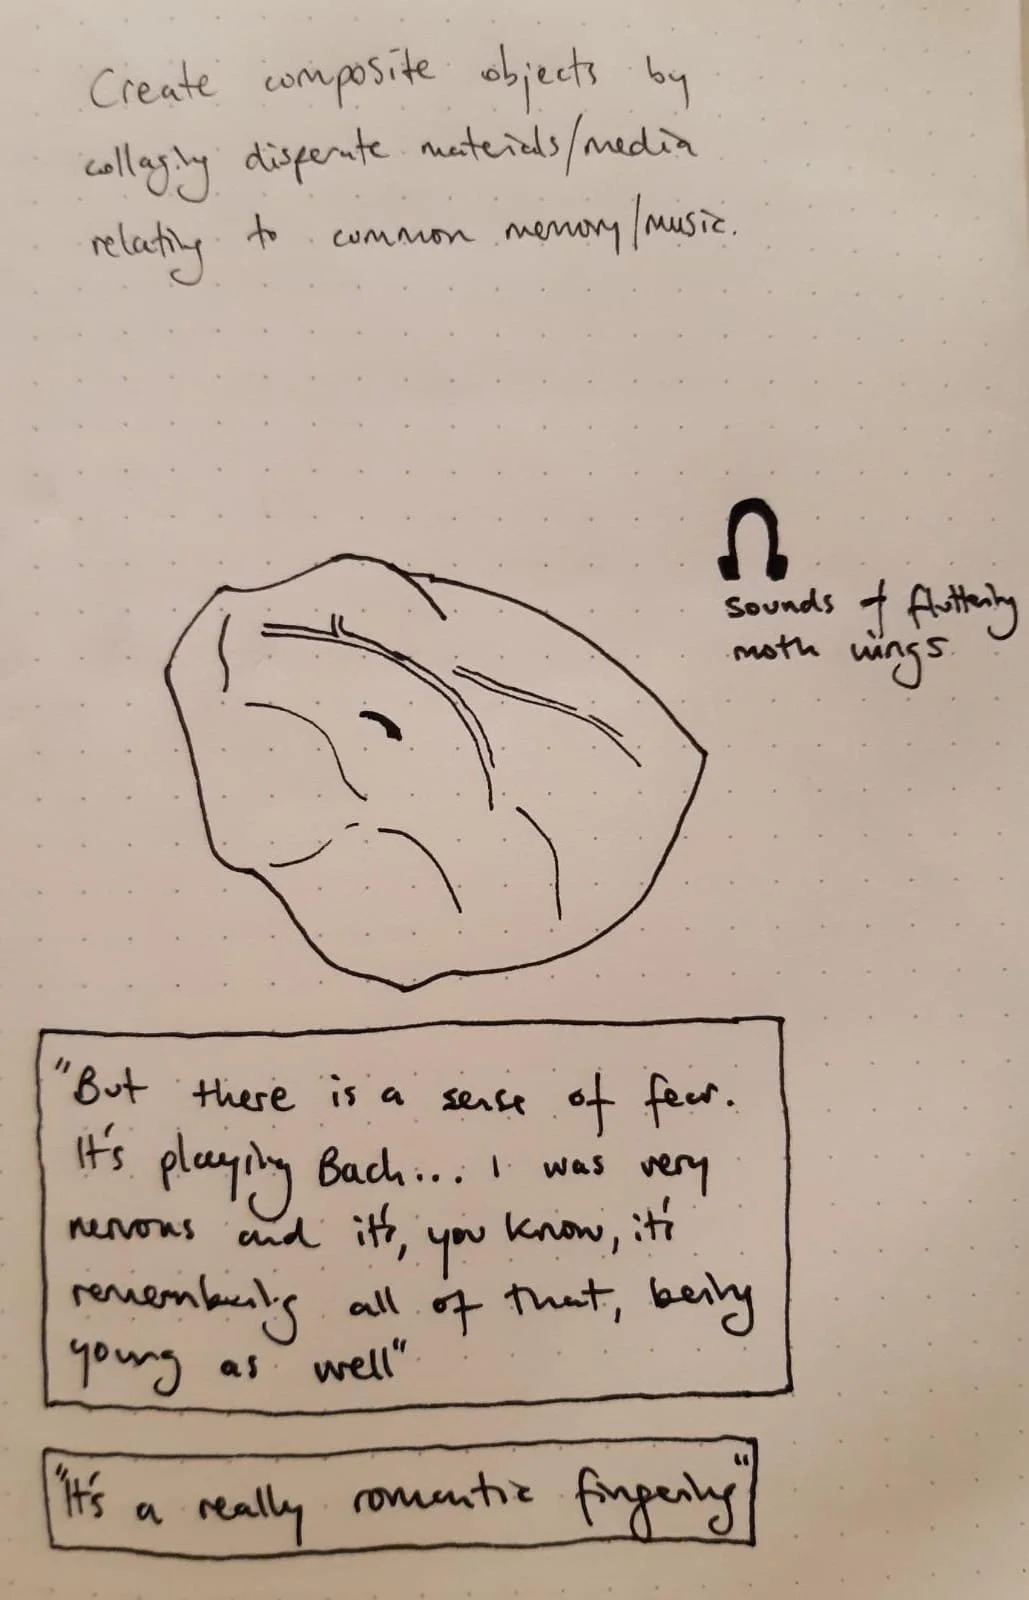 Create composite objects by
collaging disperate materials/media
relating to common memory/music.
sounds of fluttering
moth wings
"But there is a sense of fear.
It's playing Bach... I was very
nervous and it's, you know, it's
remembering all of that, being
young as well"
"It's a really romantic fingering"